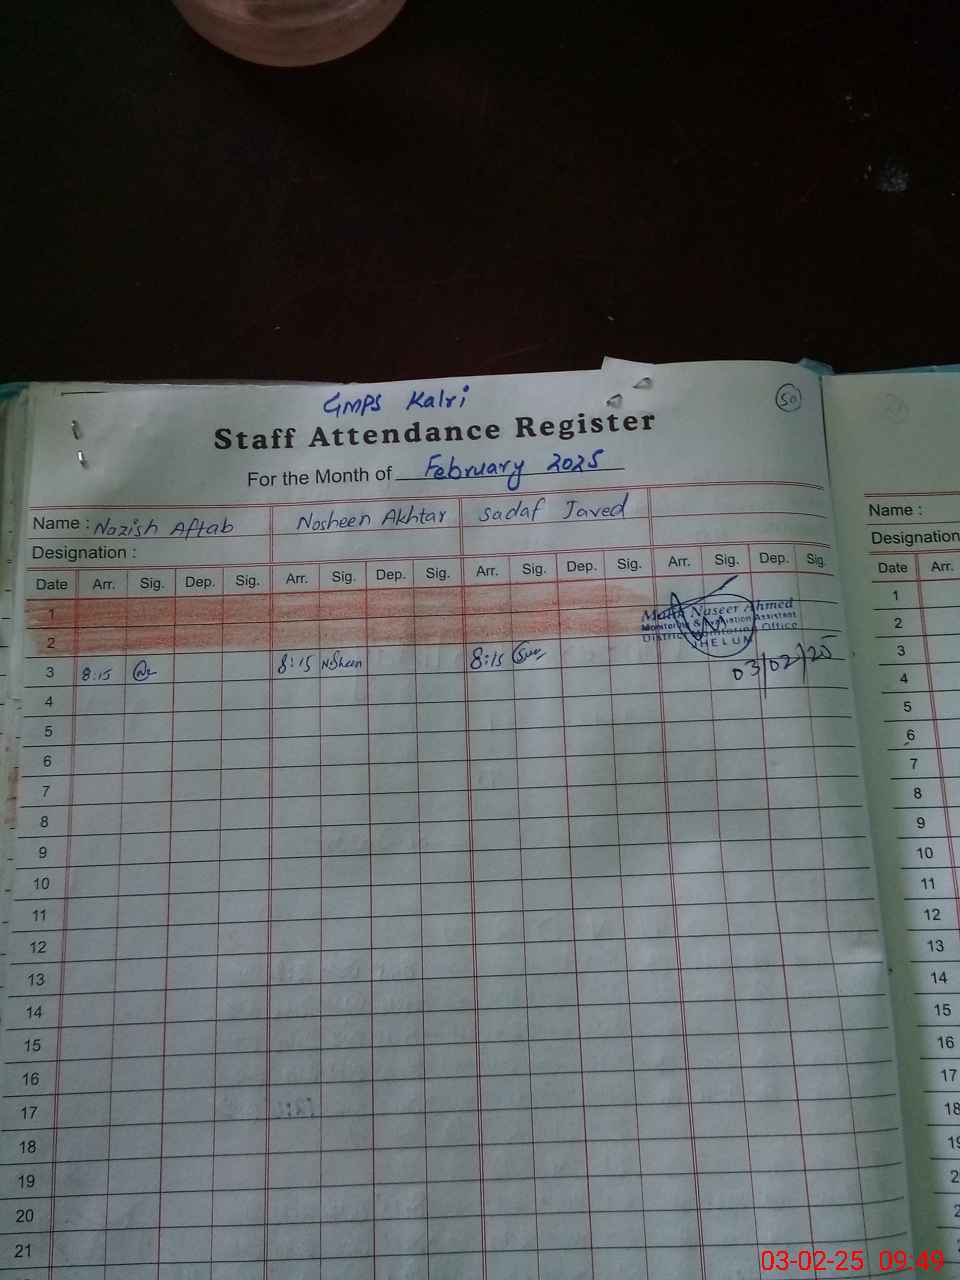 GMPS Kalri
50
Staff Attendance Register
For the Month of February 2025
Name : Nazish Aftab Nosheen Akhtar Sadaf Javed
Designation :
Date Arr. Sig. Dep. Sig. Arr. Sig. Dep. Sig. Arr. Sig. Dep. Sig. Arr. Sig. Dep. Sig.
1
2
Malik Naseer Ahmed
Monitoring & Evaluation Assistant
District Monitoring Office
JHELUM
03/02/25
3 8:15 8:15 NSheen 8:15
4
5
6
7
8
9
10
11
12
13
14
15
16
17
18
19
20
21
Name :
Designation
Date Arr.
1
2
3
4
5
6
7
8
9
10
11
12
13
14
15
16
17
18
03-02-25 09:49